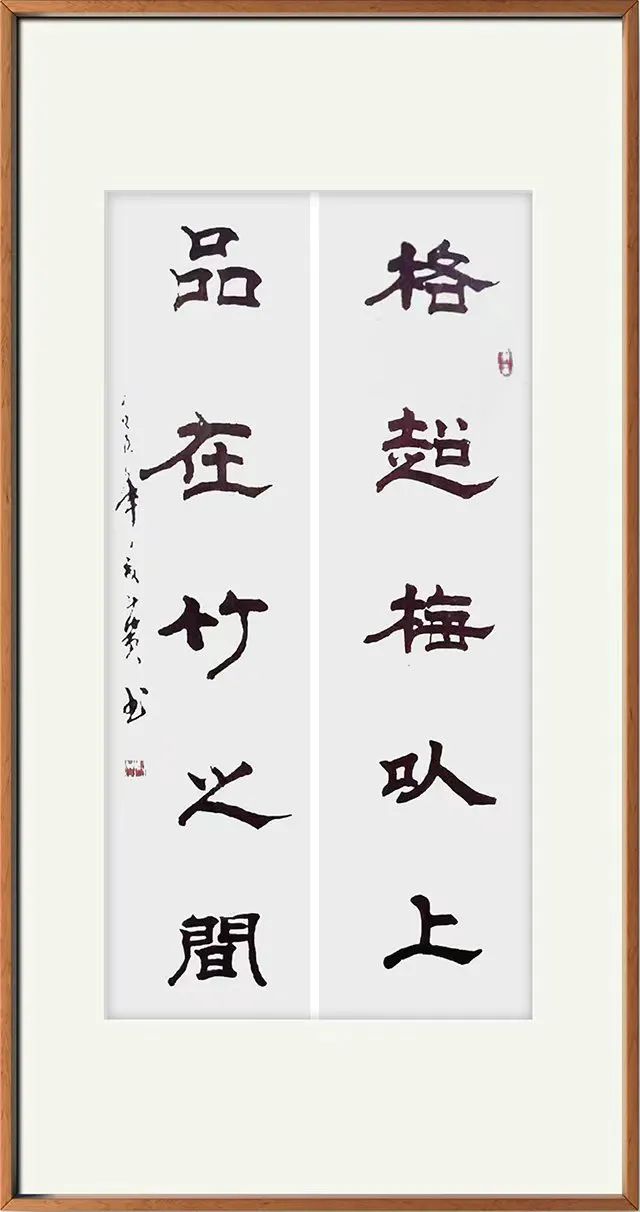 格超梅以上
品在竹之間